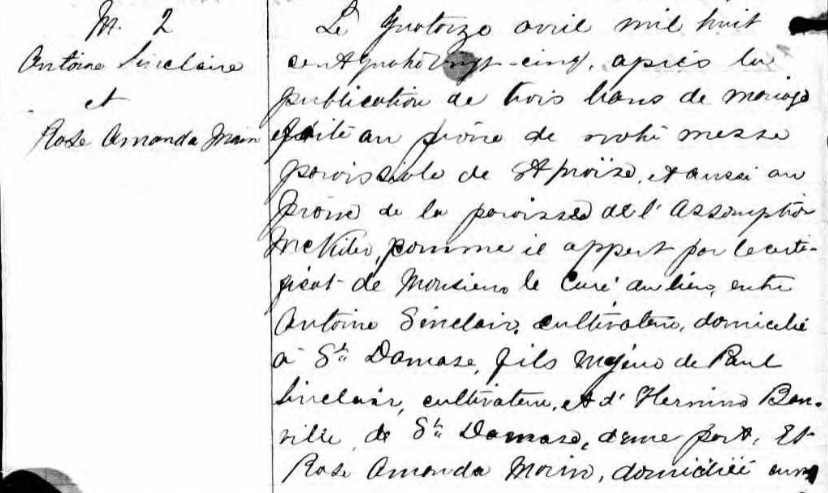 M. 2
Antoine Sinclaire
et
Rose Amanda Morin
Le quatorze avril mil huit
cent quatre vingt-cinq, après la
publication de trois bans de mariage
faite au prône de notre messe
paroissiale de St Moïse, et aussi au
prône de la paroisse de l'Assomption
McNider, comme il appert par le certi-
ficat de Monsieur le Curé du lieu, entre
Antoine Sinclair, cultivateur, domicilié
à St Damase, fils majeur de Paul
Sinclair, cultivateur, et d'Hermine Ban-
ville de St Damase, d'une part, Et
Rose Amanda Morin, domiciliée